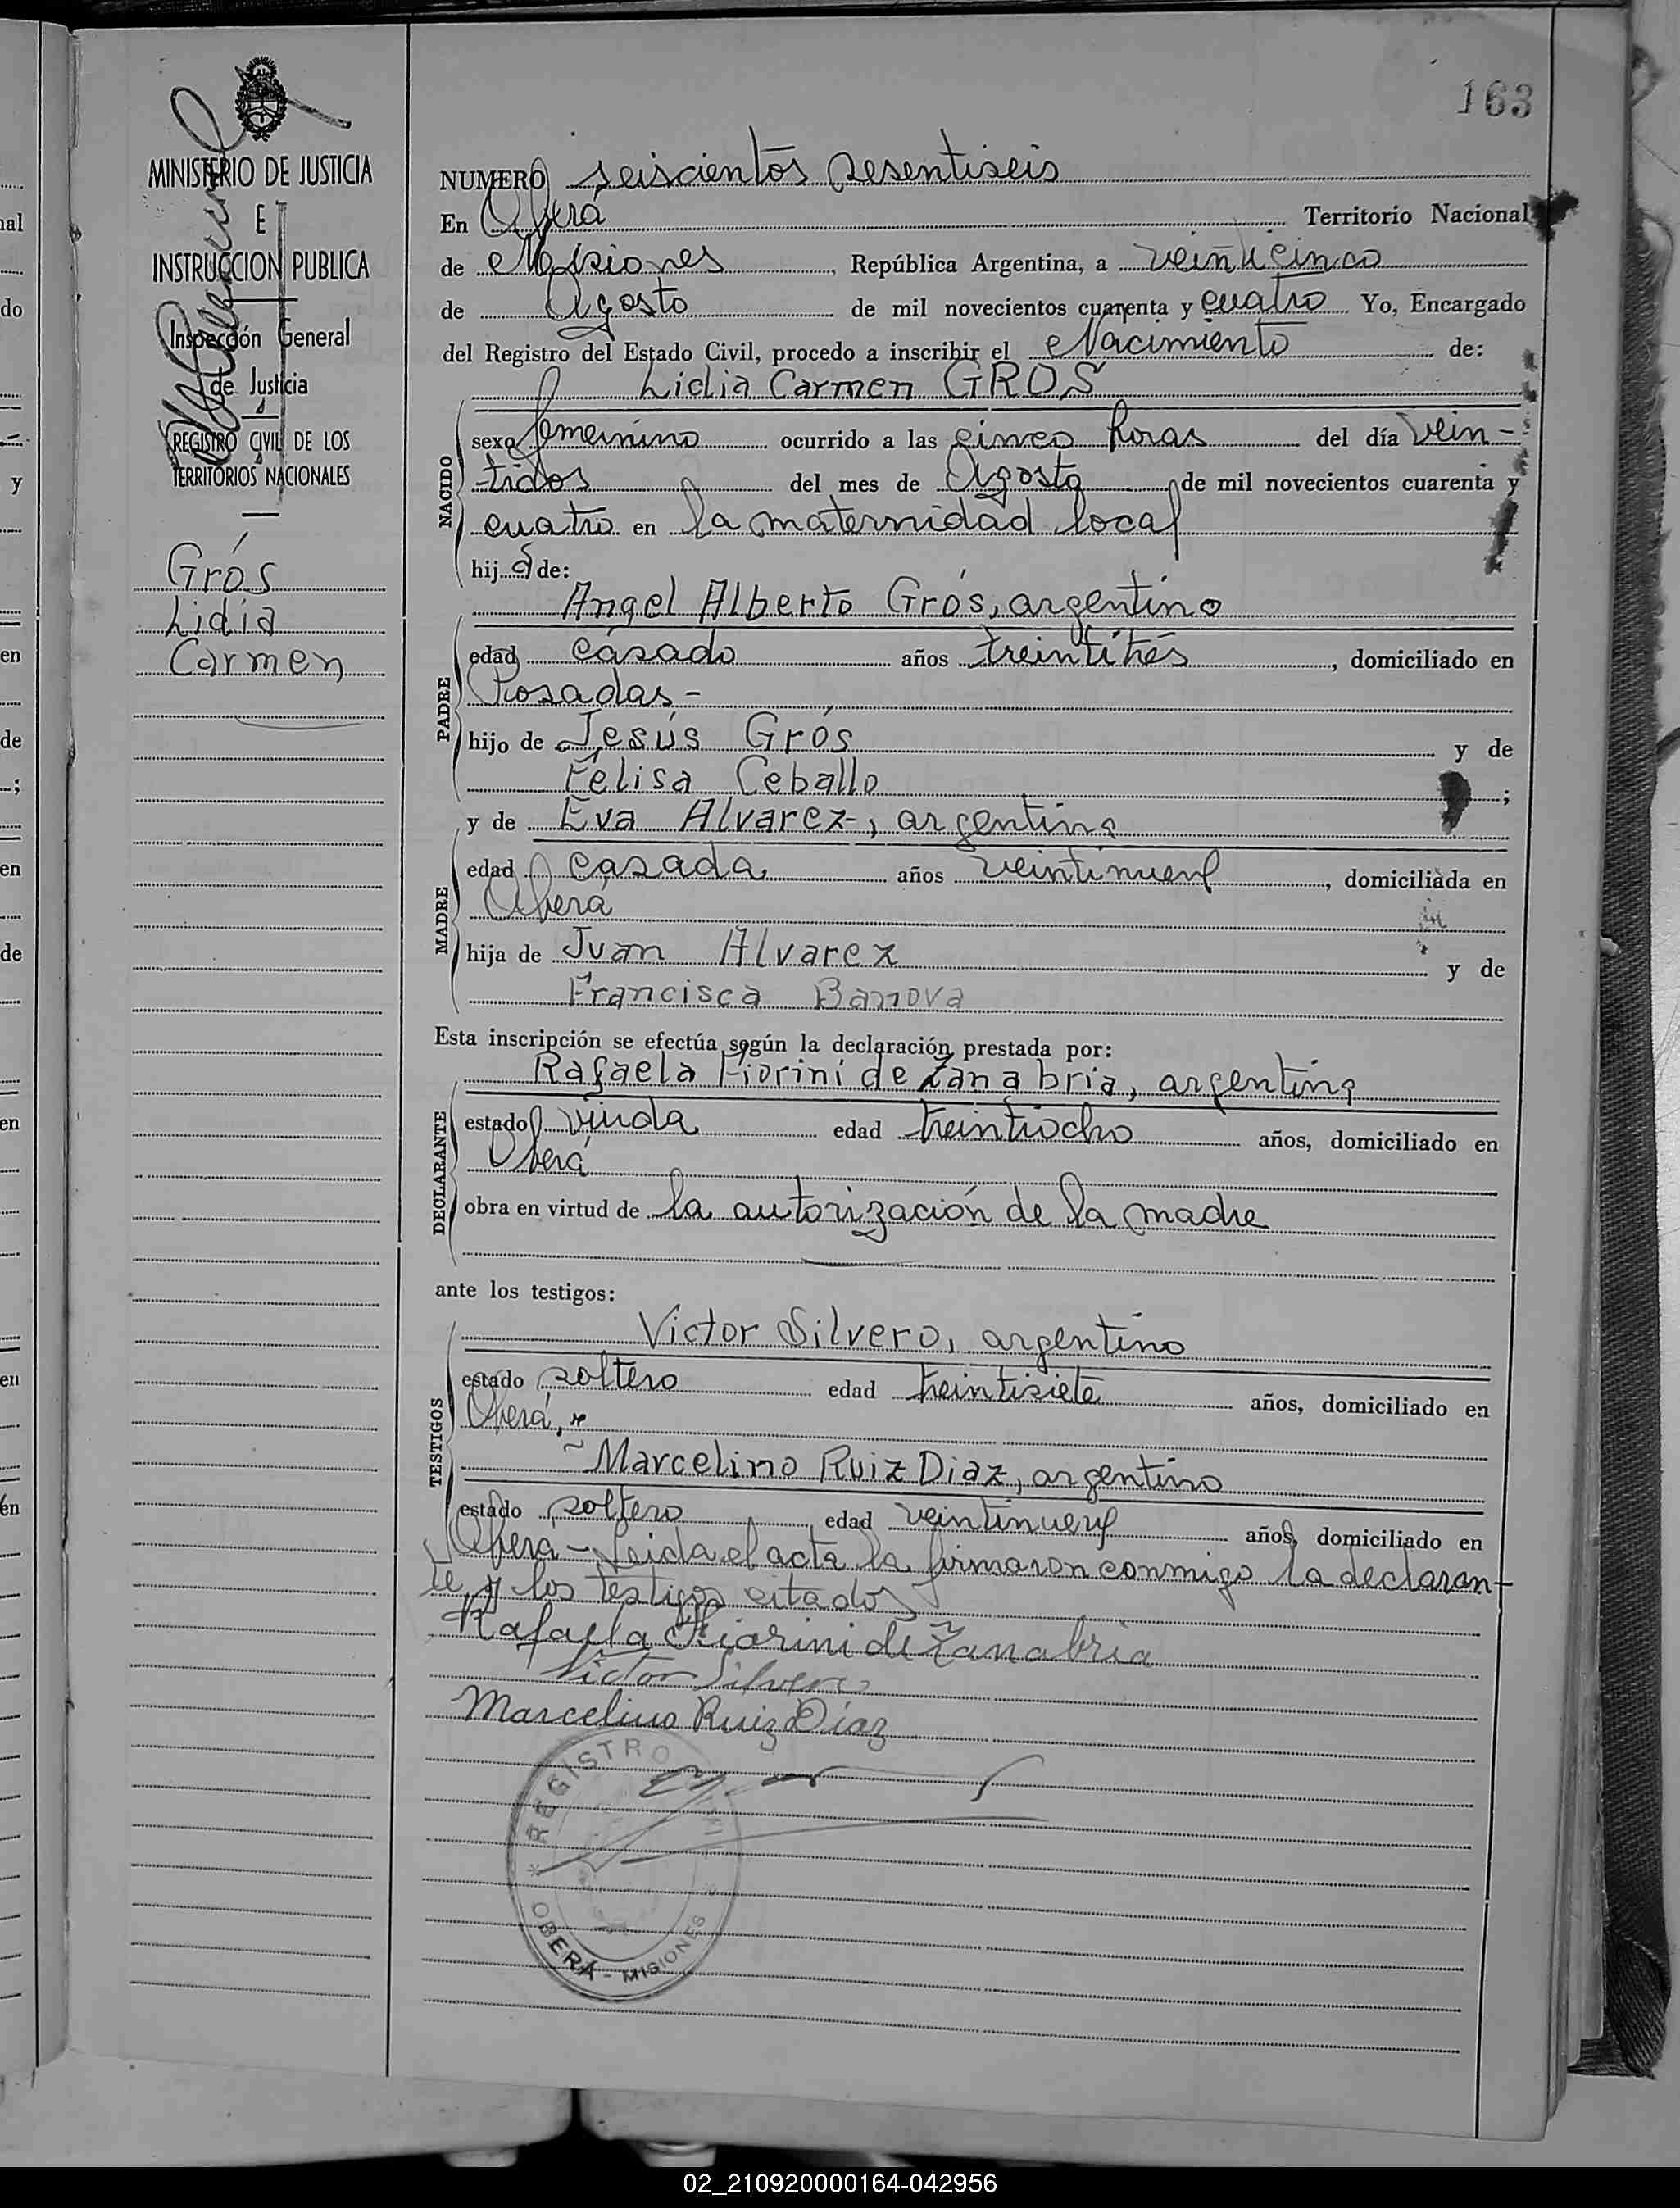 163
MINISTERIO DE JUSTICIA
E
INSTRUCCION PUBLICA
Inspección General
de Justicia
REGISTRO CIVIL DE LOS
TERRITORIOS NACIONALES
Grós
Lidia
Carmen
NUMERO seiscientos sesentiseis
En Oberá Territorio Nacional
de Misiones, República Argentina, a veinticinco
de Agosto de mil novecientos cuarenta y cuatro Yo, Encargado
del Registro del Estado Civil, procedo a inscribir el Nacimiento de:
Lidia Carmen GROS
NACIDO
sexo femenino ocurrido a las cinco horas del día vein-
tidos del mes de Agosto de mil novecientos cuarenta y
cuatro en la maternidad local
hija de:
Angel Alberto Grós, argentino
PADRE
edad casado años treintitrés, domiciliado en
Posadas-
hijo de Jesús Grós y de
Felisa Ceballo ;
y de Eva Alvarez, argentina
MADRE
edad casada años veintinueve, domiciliada en
Oberá
hija de Juan Alvarez y de
Francisca Banova
Esta inscripción se efectúa según la declaración prestada por:
Rafaela Fiorini de Zanabria, argentina
DECLARANTE
estado viuda edad treintiocho años, domiciliado en
Oberá
obra en virtud de la autorización de la madre
ante los testigos:
Victor Silvero, argentino
TESTIGOS
estado soltero edad treintisiete años, domiciliado en
Oberá,
Marcelino Ruiz Diaz, argentino
estado soltero edad veintinueve años, domiciliado en
Oberá- Leida el acta la firmaron conmigo la declaran-
te y los testigos citados
Rafaela Fiorini de Zanabria
Victor Silvero
Marcelino Ruiz Díaz
REGISTRO
OBERÁ - MISIONES
02_210920000164-042956